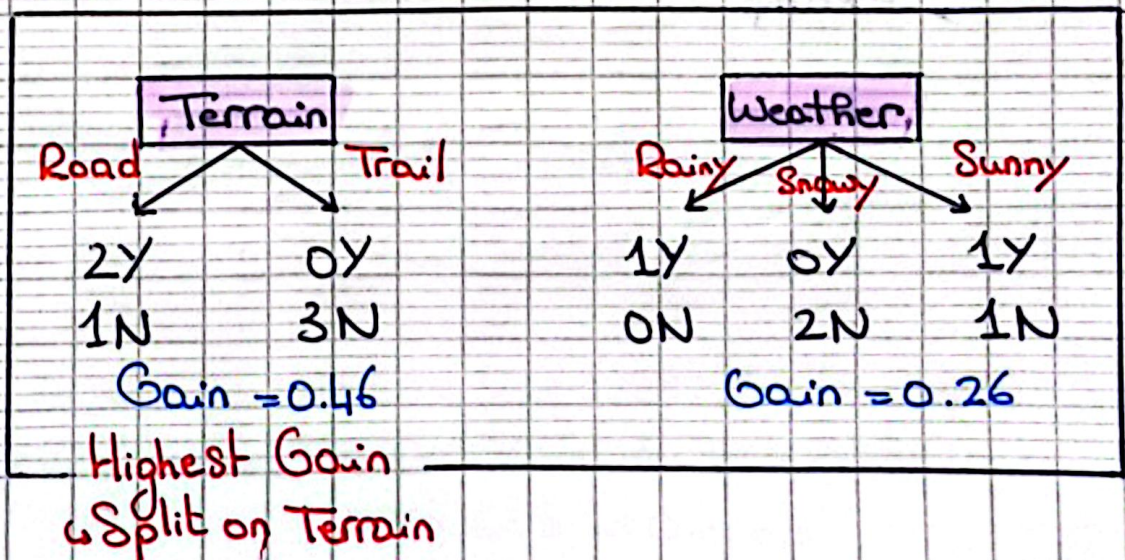 Terrain
Road Trail
2Y 0Y
1N 3N
Gain = 0.46
Highest Gain
↳ Split on Terrain
Weather
Rainy Snowy Sunny
1Y 0Y 1Y
0N 2N 1N
Gain = 0.26